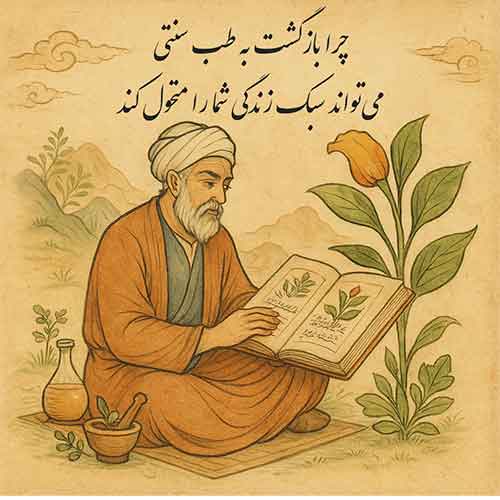 چرا بازگشت به طب سنتی
می‌تواند سبک زندگی شما را متحول کند